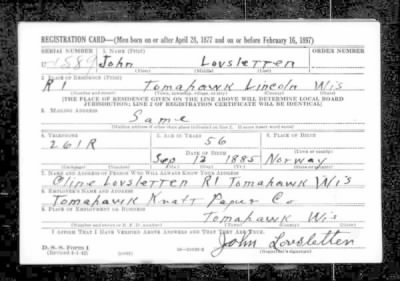 REGISTRATION CARD—(Men born on or after April 28, 1877 and on or before February 16, 1897)
SERIAL NUMBER 1. NAME (Print) ORDER NUMBER
U 1589 John Lovsletten
(First) (Middle) (Last)
2. PLACE OF RESIDENCE (Print)
R 1 Tomahawk Lincoln Wis
(Number and street) (Town, township, village, or city) (County) (State)
[THE PLACE OF RESIDENCE GIVEN ON THE LINE ABOVE WILL DETERMINE LOCAL BOARD
JURISDICTION; LINE 2 OF REGISTRATION CERTIFICATE WILL BE IDENTICAL]
3. MAILING ADDRESS
Same
[Mailing address if other than place indicated on line 2. If same insert word same]
4. TELEPHONE 5. AGE IN YEARS 6. PLACE OF BIRTH
261R 56
DATE OF BIRTH
Sep 12 1885 Norway
(Exchange) (Number) (Mo.) (Day) (Yr.) (State or country)
7. NAME AND ADDRESS OF PERSON WHO WILL ALWAYS KNOW YOUR ADDRESS
Cline Lovsletten R1 Tomahawk Wis
8. EMPLOYER'S NAME AND ADDRESS
Tomahawk Kraft Paper Co
9. PLACE OF EMPLOYMENT OR BUSINESS
Tomahawk Wis
(Number and street or R. F. D. number) (Town) (County) (State)
I AFFIRM THAT I HAVE VERIFIED ABOVE ANSWERS AND THAT THEY ARE TRUE.
John Lovsletten
D. S. S. Form 1
(Revised 4-1-42) (Registrant's signature)